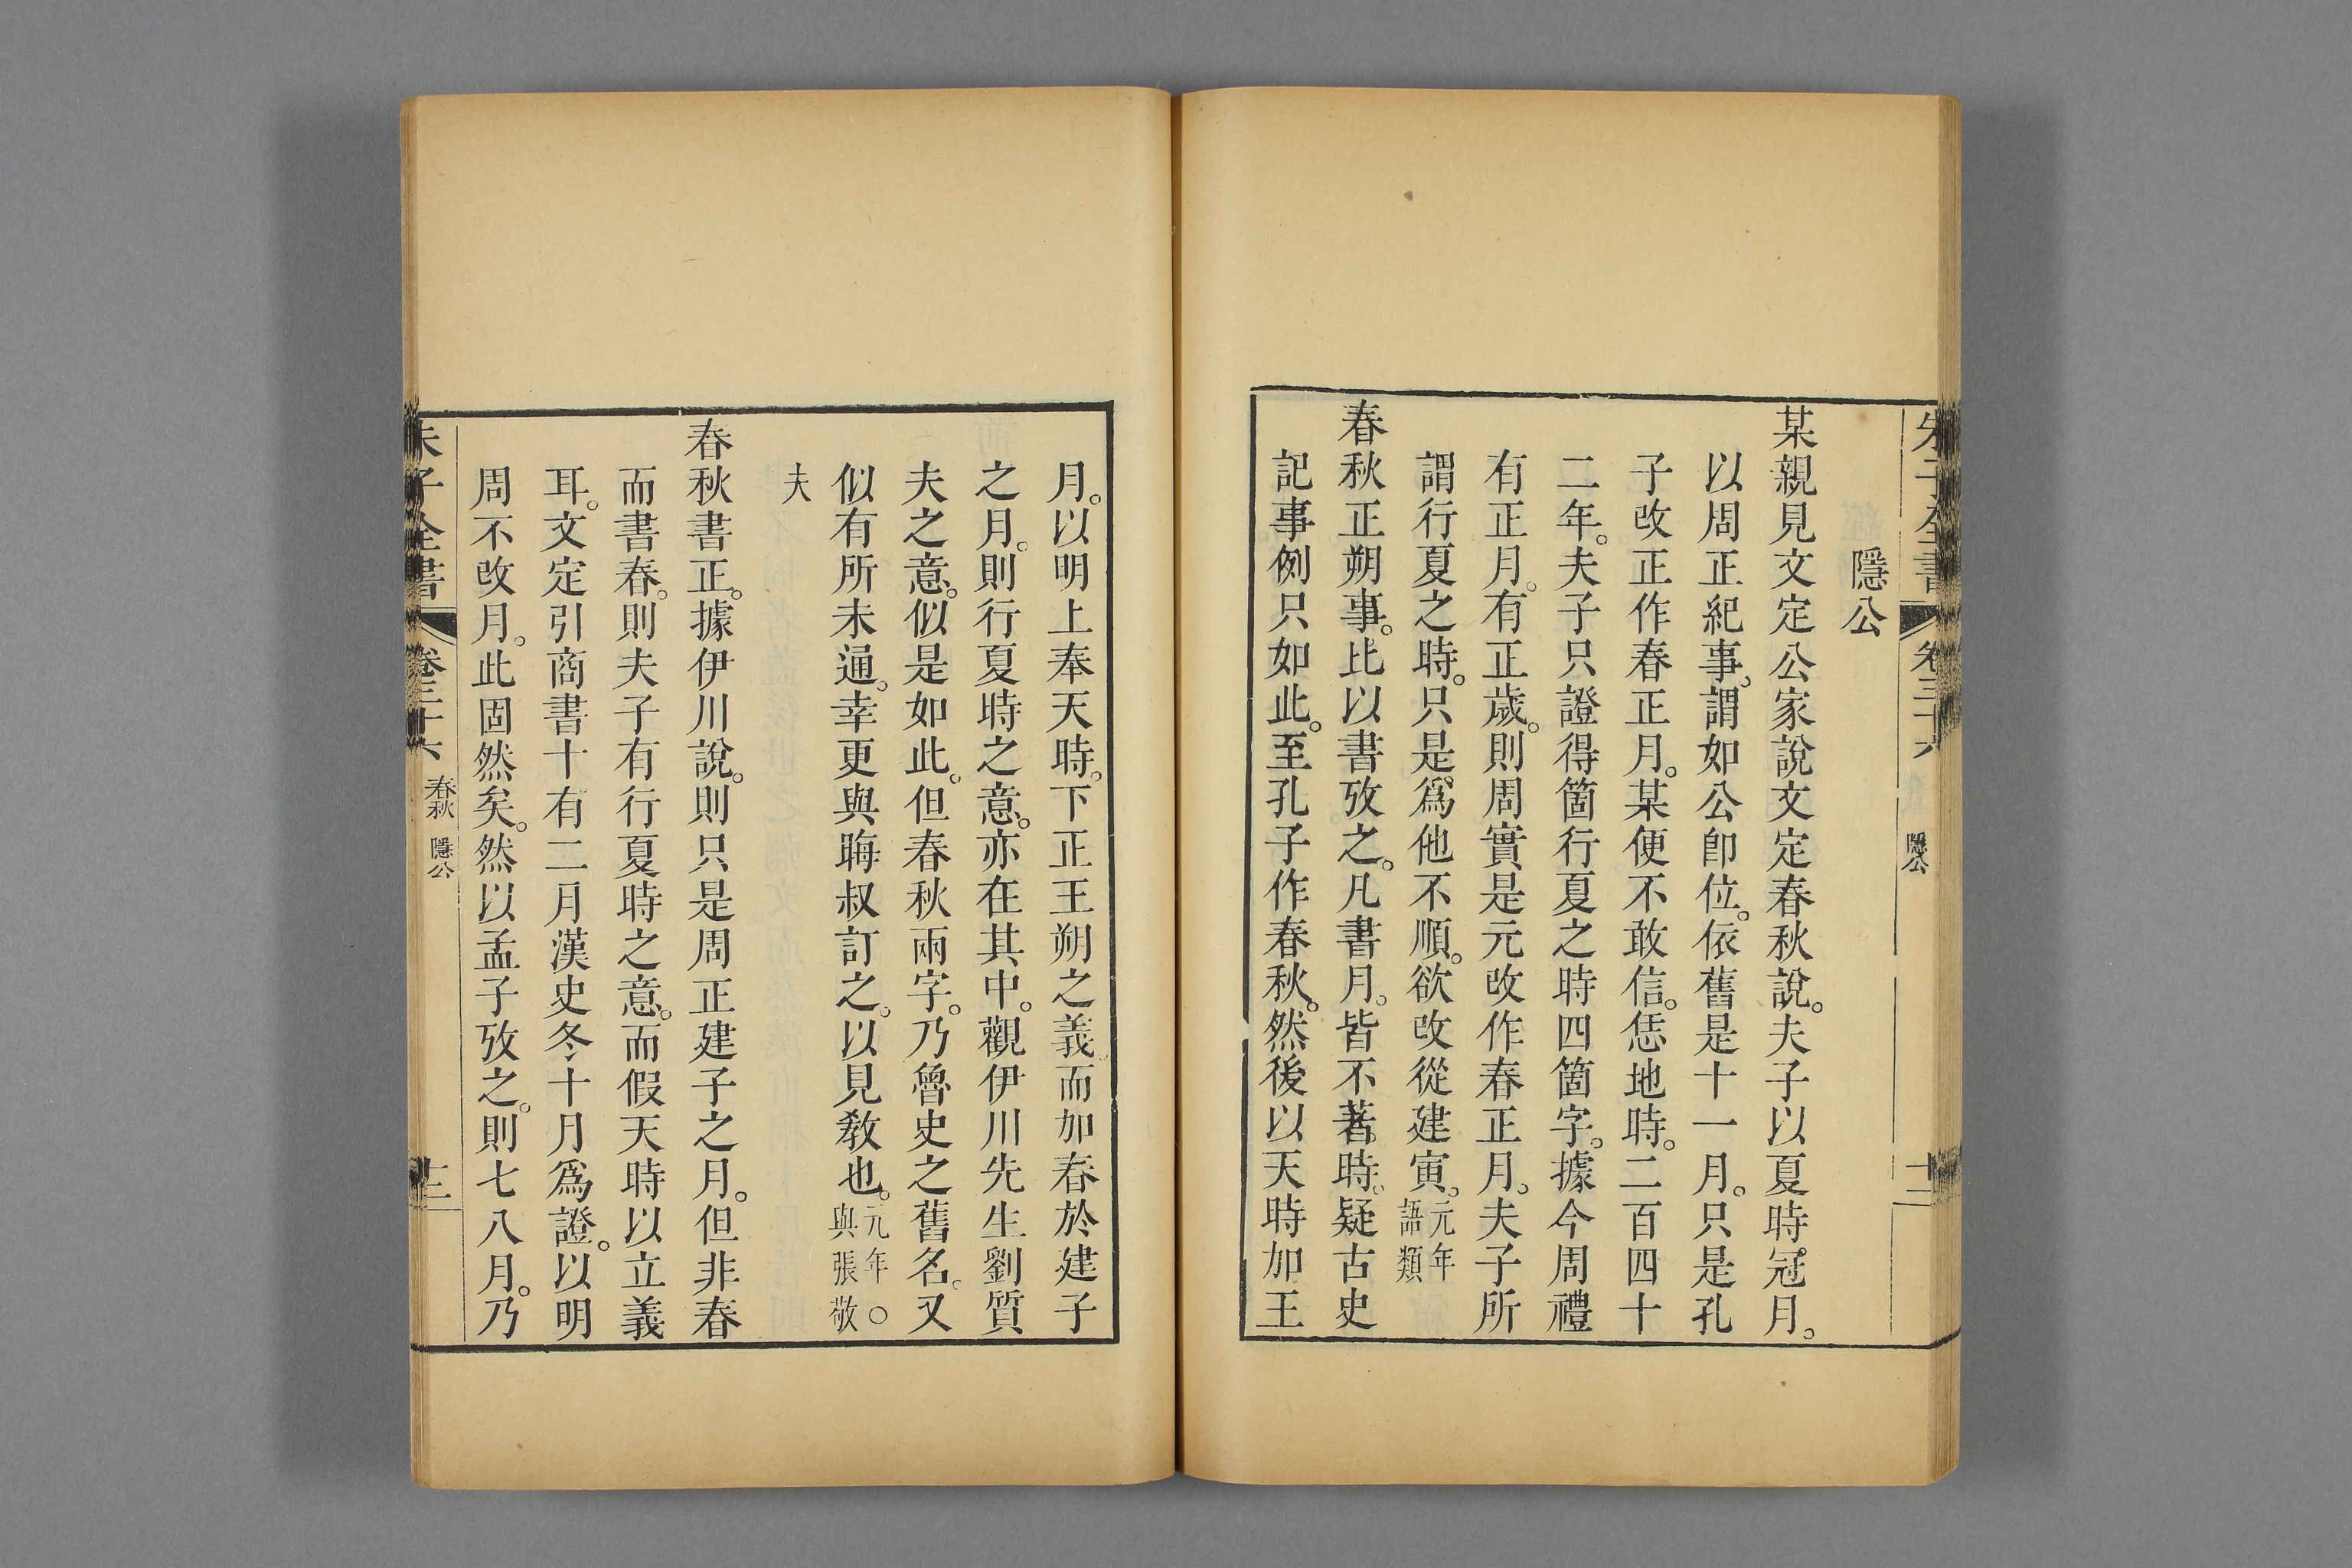 朱子全書 卷三十六 隱公 十二
隱公
某親見文定公家說文定春秋說。夫子以夏時冠月。
以周正紀事。謂如公卽位。依舊是十一月。只是孔
子改正作春正月。某便不敢信。恁地時。二百四十
二年。夫子只證得箇行夏之時四箇字。據今周禮
有正月。有正歲。則周實是元改作春正月。夫子所
謂行夏之時。只是爲他不順。欲改從建寅。元年 語類
春秋正朔事。比以書攷之。凡書月。皆不著時。疑古史
記事例只如此。至孔子作春秋。然後以天時加王
月。以明上奉天時。下正王朔之義。而加春於建子
之月。則行夏時之意。亦在其中。觀伊川先生劉質
夫之意。似是如此。但春秋兩字。乃魯史之舊名。又
似有所未通。幸更與晦叔訂之。以見敎也。元年○ 與張敬
夫
春秋書正。據伊川說。則只是周正建子之月。但非春
而書春。則夫子有行夏時之意。而假天時以立義
耳。文定引商書十有二月漢史冬十月爲證。以明
周不改月。此固然矣。然以孟子攷之。則七八月。乃
朱子全書 卷三十六 春秋 隱公 十二